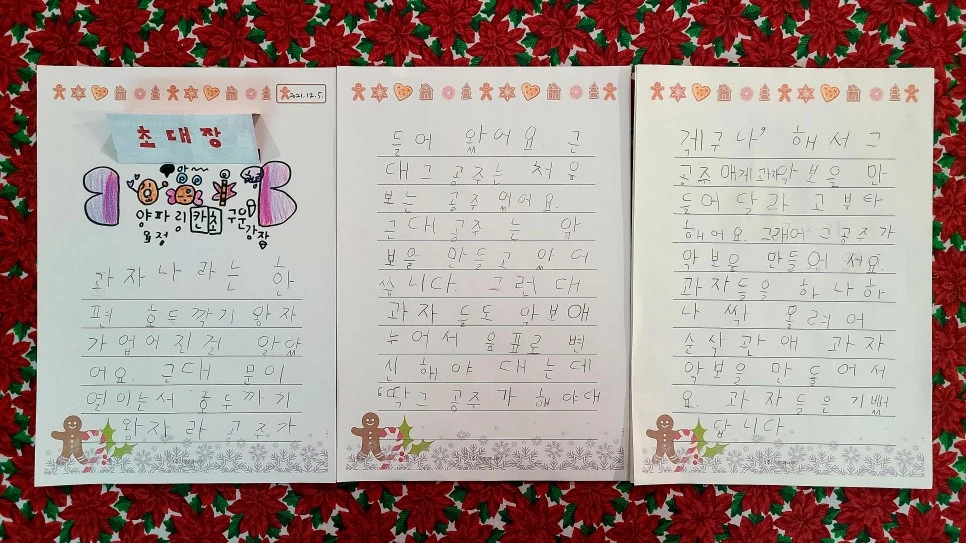 2021.12.5.
초대장
양파링 칸쵸 구운
요정 감잡
과자나라는 한
편 호두깍기 왕자
가 업어진걸 알았
어요. 근대 문이
열이는서 호두까기
왕자 라 공주가
들어 왔어요. 근
대 그 공주는 처음
보는 공주 없어요.
근대 공주 는 악
보을 만들고 있어
씁니다. 그런대
과자 들도 악보애
누어서 음표로 변
신 해야 대는데
“딱 그 공주가 해야대
겠구나” 해서 그
공주애게 과자악보을 만
들어 달라고 부탁
해어요. 그래어 그공주가
악보을 만들어 서요.
과자들을 하나하
나 싹 올려어
순식 관애 과자
악보을 만들어서
요. 과자들은 기뻤
답니다.